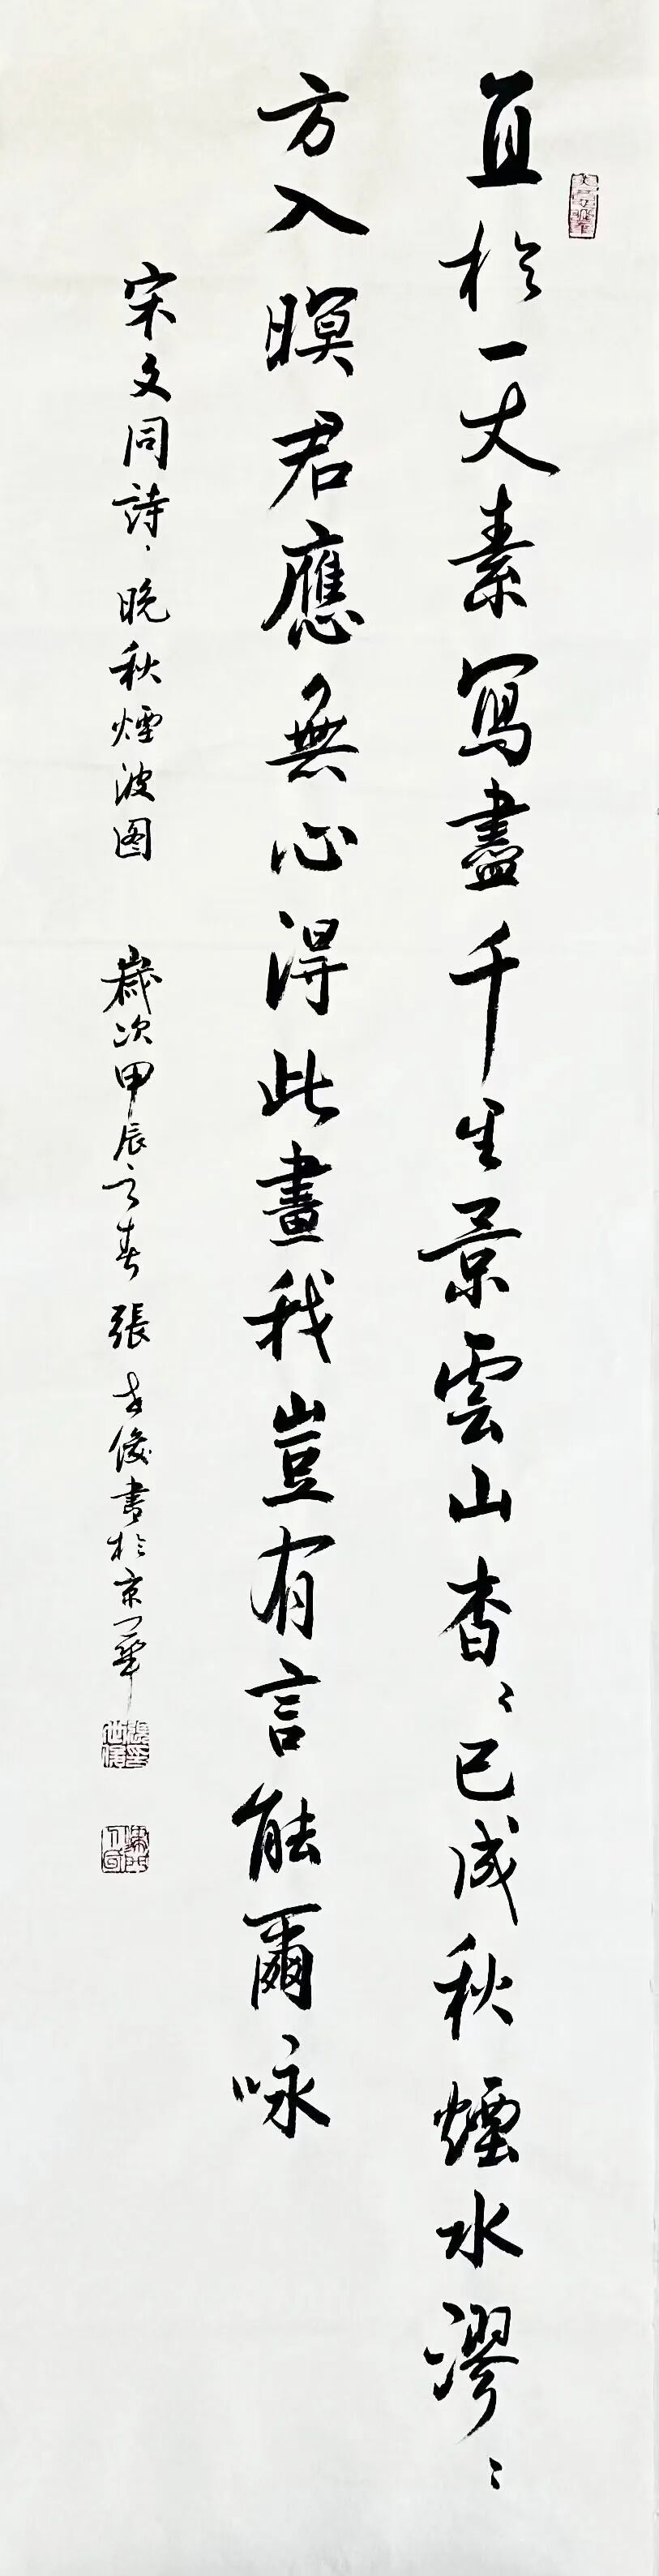 直於一丈素寫盡千里景雲山杳〻已成秋煙水漻〻
方入暝君應無心得此畫我豈有言能爾咏
宋文同詩、晚秋煙波图 歲次甲辰之春 張世俊書於京華